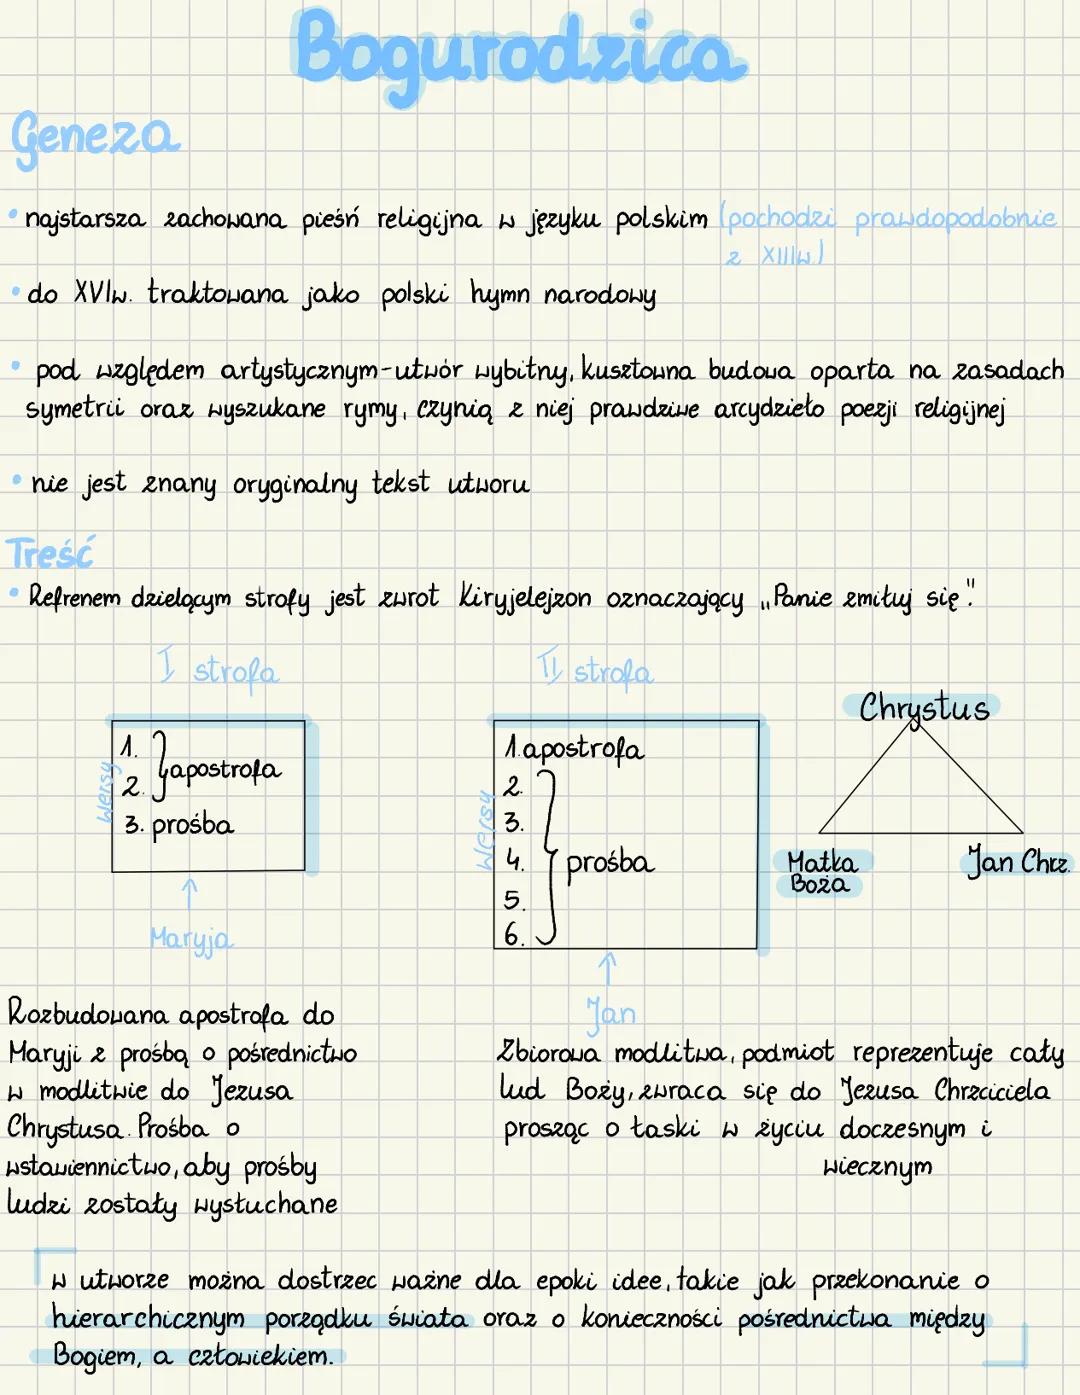 Bogurodzica
Geneza
• najstarsza zachowana pieśń religijna w języku polskim (pochodzi prawdopodobnie
z XIIIw.)
• do XVIw. traktowana jako polski hymn narodowy
• pod względem artystycznym-utwór wybitny, kusztowna budowa oparta na zasadach
symetrii oraz wyszukane rymy, czynią z niej prawdziwe arcydzieło poezji religijnej
• nie jest znany oryginalny tekst utworu
Treść
• Refrenem dzielącym strofy jest zwrot Kiryjelejzon oznaczający „Panie zmiłuj się".
I strofa
Wersy
1.
2.
apostrofa
3. prośba
Maryja
Rozbudowana apostrofa do
Maryji z prośbą o pośrednictwo
w modlitwie do Jezusa
Chrystusa. Prośba o
wstawiennictwo, aby prośby
ludzi zostały wysłuchane
II strofa
Wersy
1. apostrofa
2.
3.
4.
5.
6.
prośba
Jan
Chrystus
Matka
Boża
Jan Chrz.
Zbiorowa modlitwa, podmiot reprezentuje cały
lud Boży, zwraca się do Jezusa Chrzciciela
prosząc o łaski w życiu doczesnym i
wiecznym
W utworze można dostrzec ważne dla epoki idee, takie jak przekonanie o
hierarchicznym porządku świata oraz o konieczności pośrednictwa między
Bogiem, a człowiekiem.